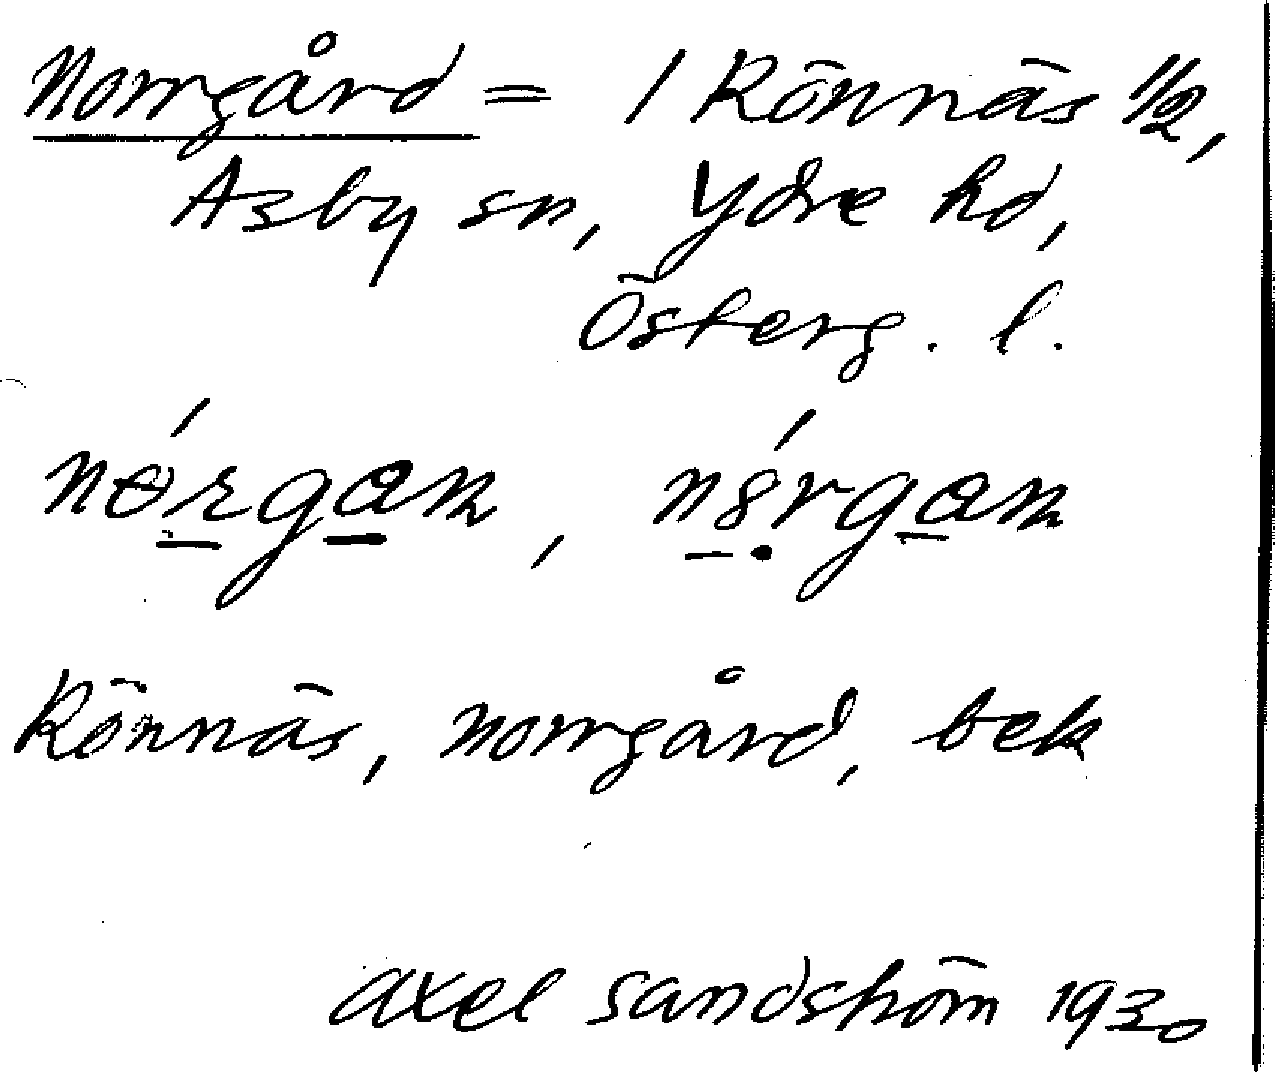 Norrgård = 1 Rönnäs 1/2,
Asby sn, Ydre hd,
Österg. l.
nǿrgan, nǿrgan
Rönnäs, norrgård, bek
Axel Sandström 1930